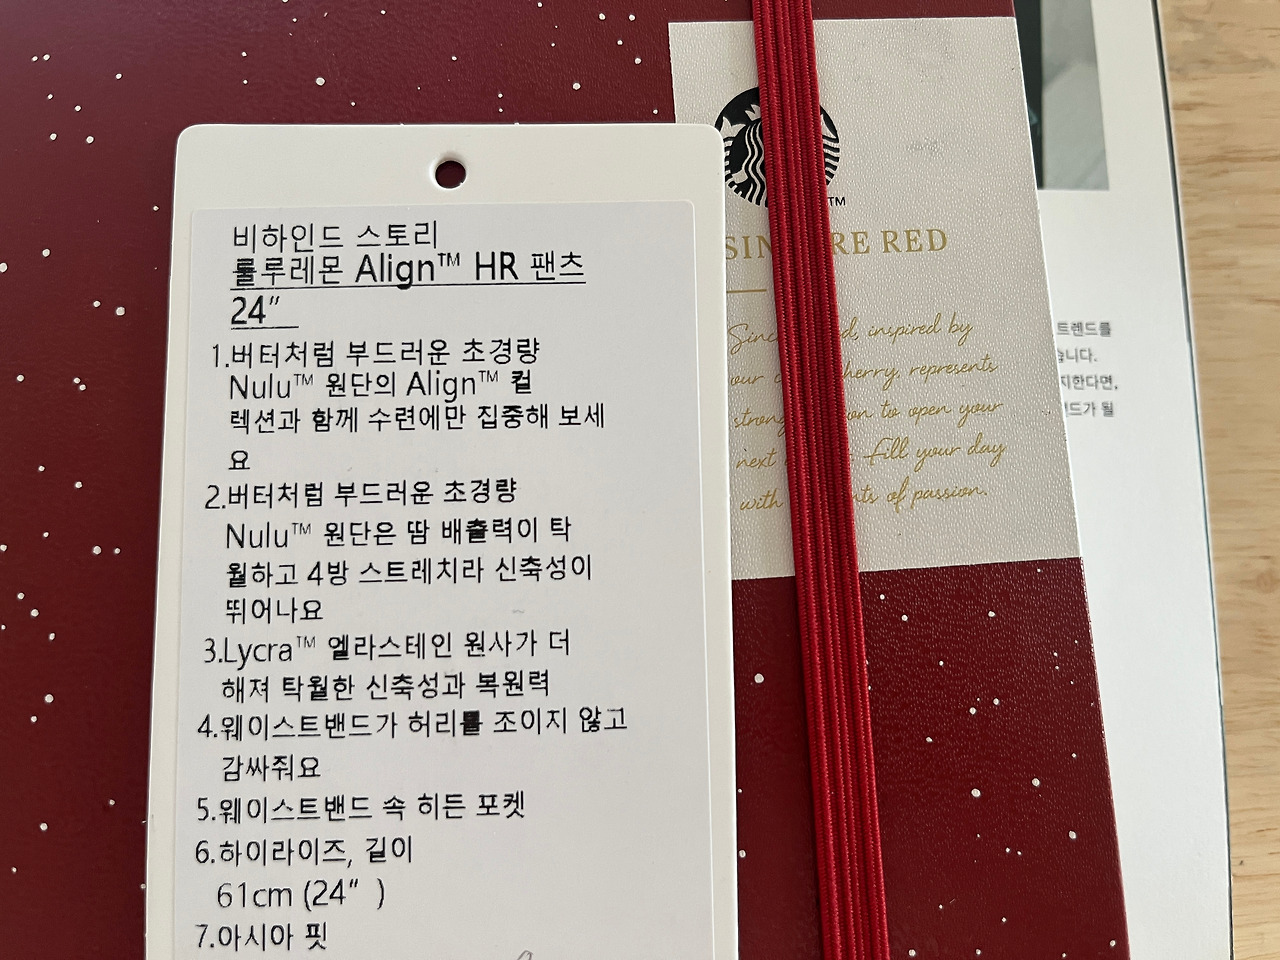 비하인드 스토리
룰루레몬 Align™ HR 팬츠
24"
1.버터처럼 부드러운 초경량
Nulu™ 원단의 Align™ 컬
렉션과 함께 수련에만 집중해 보세
요
2.버터처럼 부드러운 초경량
Nulu™ 원단은 땀 배출력이 탁
월하고 4방 스트레치라 신축성이
뛰어나요
3.Lycra™ 엘라스테인 원사가 더
해져 탁월한 신축성과 복원력
4.웨이스트밴드가 허리를 조이지 않고
감싸줘요
5.웨이스트밴드 속 히든 포켓
6.하이라이즈, 길이
61cm (24" )
7.아시아 핏
TM
RE RED
inspired by
our herry, represents
to open your
next Fill your day
with of passion.
트렌드를
습니다.
지한다면,